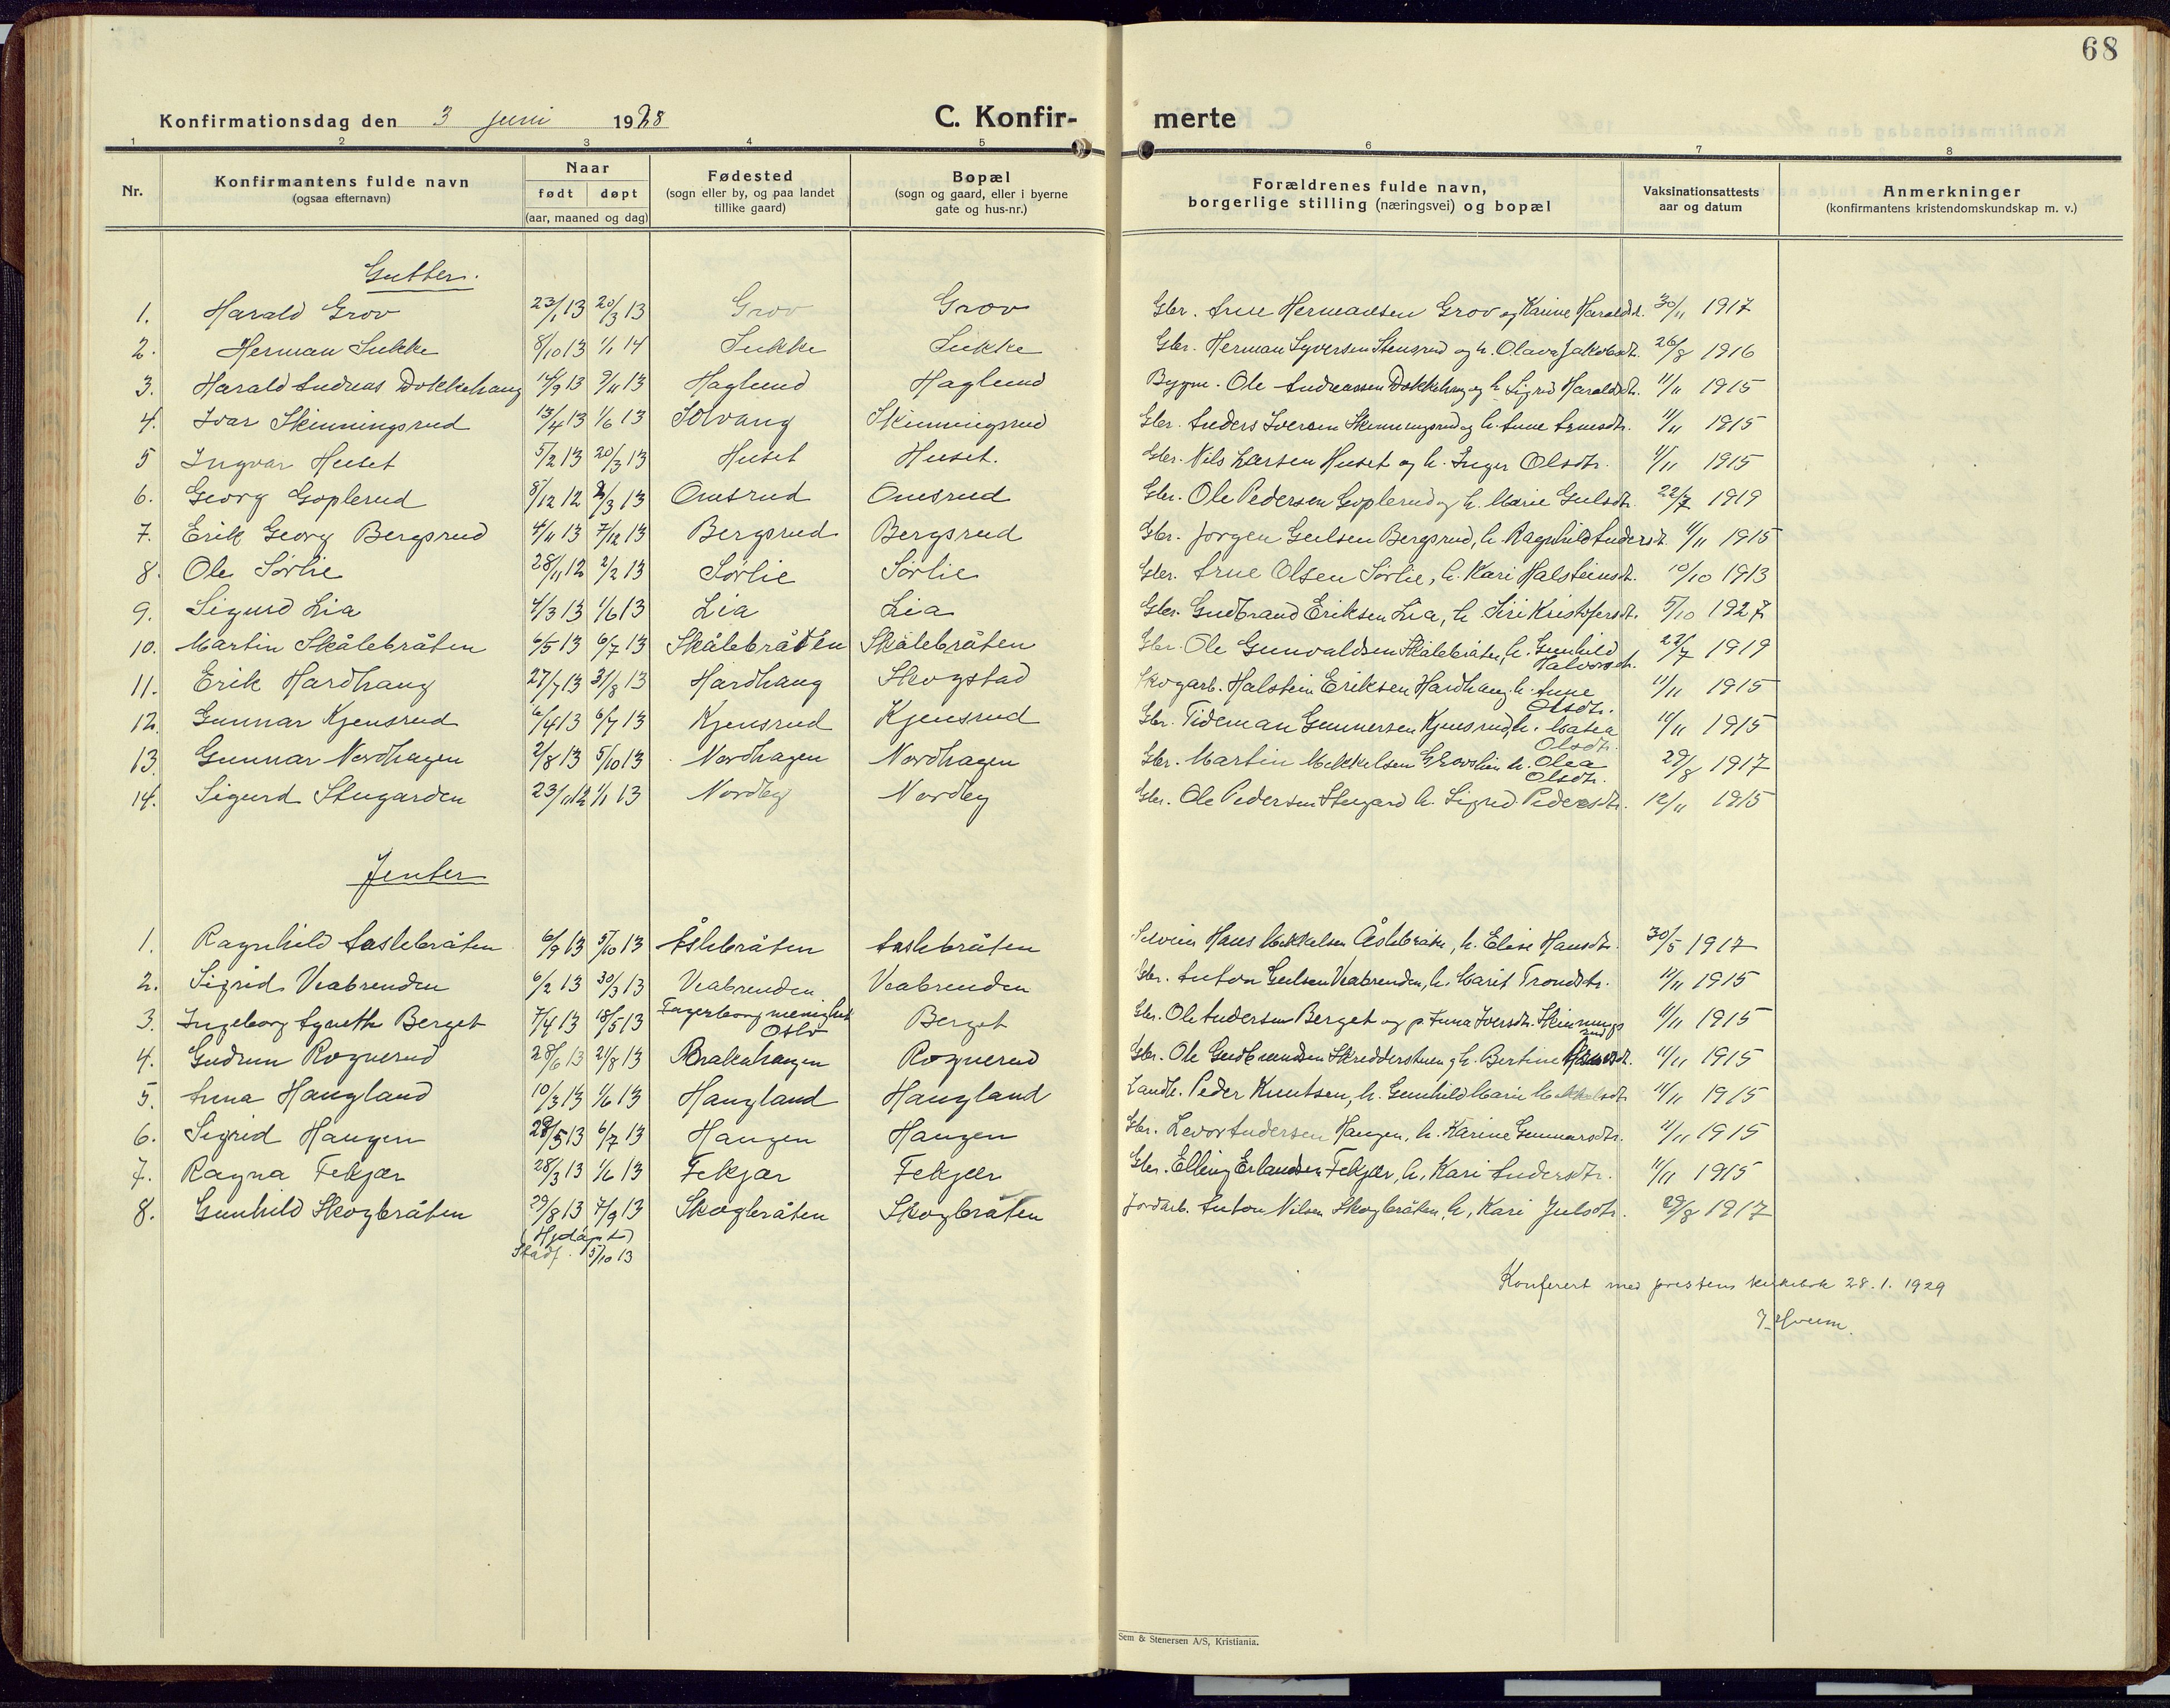 68
Konfirmationsdag den 3 juni 1928 C. Konfir- merte
1 2 3 4 5 6 7 8
Nr.
Konfirmantens fulde navn
(ogsaa efternavn)
Naar
født døpt
(aar, maaned og dag)
Fødested
(sogn eller by, og paa landet
tillike gaard)
Bopæl
(sogn og gaard, eller i byerne
gate og hus-nr.)
Forældrenes fulde navn,
borgerlige stilling (næringsvei) og bopæl
Vaksinationsattests
aar og datum
Anmerkninger
(konfirmantens kristendomskundskap m. v.)
Gutter.
1. Harald Grov 23/1 13 20/3 13 Grov Grov Gbr. Arne Hermansen Grov og Karine Haraldsd. 30/11 1917
2. Herman Sukke 8/10 13 1/1 14 Sukke Sukke Gbr. Herman Syversen Stensrud og h. Olava Jakobsdt. 26/8 1916
3. Harald Andreas Dokkehaug 14/9 13 9/11 13 Haglund Haglund Bygm. Ole Andreassen Dokkehaug og h. Sigrid Haraldsdt. 11/11 1915
4. Ivar Skinningsrud 13/4 13 1/6 13 Solvang Skinningsrud Gbr. Anders Iversen Skinningsrud og h. Anne Arnesdtr. 11/11 1915
5 Ingvar Huset 5/2 13 20/3 13 Huset Huset. Gbr. Nils Larsen Huset og h. Inger Olsdtr. 11/11 1915
6. Georg Goplerud 8/12 12 2/3 13 Omsrud Omsrud Gbr. Ole Pedersen Goplerud og h. Marie Gulsdt. 22/7 1919
7. Erik Georg Bergsrud 4/11 13 7/12 13 Bergsrud Bergsrud Gbr. Jørgen Gulsen Bergsrud, h. Ragnhild Andersdt. 11/11 1915
8. Ole Sørlie 28/11 12 2/2 13 Sørlie Sørlie Gbr. Arne Olsen Sørlie, h. Kari Halsteinsdt. 10/10 1913
9. Sigurd Lia 4/3 13 1/6 13 Lia Lia Gbr. Gudbrand Eriksen Lia, h. Siri Kristofersdt. 5/10 1927
10. Martin Skålebråten 6/5 13 6/7 13 Skålebråten Skålebråten Gbr. Ole Gunvaldsen Skålebråten, h. Gunhild 22/7 1919
Halvorsdt.
11. Erik Hardhaug 27/7 13 31/8 13 Hardhaug Skogstad Skogarb. Halstein Eriksen Hardhaug. h. Anne 11/11 1915
Olsdt.
12. Gunnar Kjensrud 6/4 13 6/7 13 Kjensrud Kjensrud Gbr. Tideman Gunnersen Kjensrud, h. Matea 10/11 1915
Olsdt.
13. Gunnar Nordhagen 2/8 13 5/10 13 Nordhagen Nordhagen Gbr. Martin Mekkelsen h. Olea 29/8 1917
Olsdt.
14. Sigurd Stugarden 23/11 12 1/1 13 Nordby Nordby Gbr. Ole Pedersen Stugard h. Sigrid Pedersdtr. 12/11 1915
Jenter
1. Ragnhild Aaslebråten 6/9 13 5/10 13 Åslebråten Aaslebråten Hans Mekkelsen Åslebråten, h. Elise Hansdt. 30/5 1917
2. Sigrid Veabrenden 6/2 13 30/3 13 Veabrenden Veabrenden Gbr. Anton Gulsen Veabrenden, h. Marit Trondsdtr. 11/11 1915
3. Ingeborg Agneth Berget 7/4 13 18/5 13 Fagerborg menighet Berget Gbr. Ole Andersen Berget og p. Anna Iversdt. Skinnings 11/11 1915
Oslo rud
4. Gudrun Rognerud 28/6 13 24/8 13 Brakahaugen Rognerud Gbr. Ole Gudbrandsen Skredderstuen og h. Bertine Hansdt. 11/11 1915
5. Anna Haugland 10/3 13 1/6 13 Haugland Haugland Landh. Peder Knutsen, h. Gunhild Marie Mekkelsdt. 11/11 1915
6. Sigrid Haugen 28/5 13 6/7 13 Haugen Haugen Gbr. Levor Andersen Haugen, h. Karine Gunnarsdtr. 11/11 1915
7. Ragna Fekjær 28/3 13 1/6 13 Fekjær Fekjær Gbr. Elling Erlandsen Fekjær, h. Kari Andersdtr. 11/11 1915
8. Gunhild Skogbråten 29/8 13 7/9 13 Skogbråten Skogbråten Jordarb. Anton Nilsen Skogbråten, h. Kari Julsdtr. 29/8 1917
(Hjdøpt)
Stadf. 5/10 13
Konferert med prestens kirkebok 28.1.1929
J. Hvum.
Sem & Stenersen A/S, Kristiania.